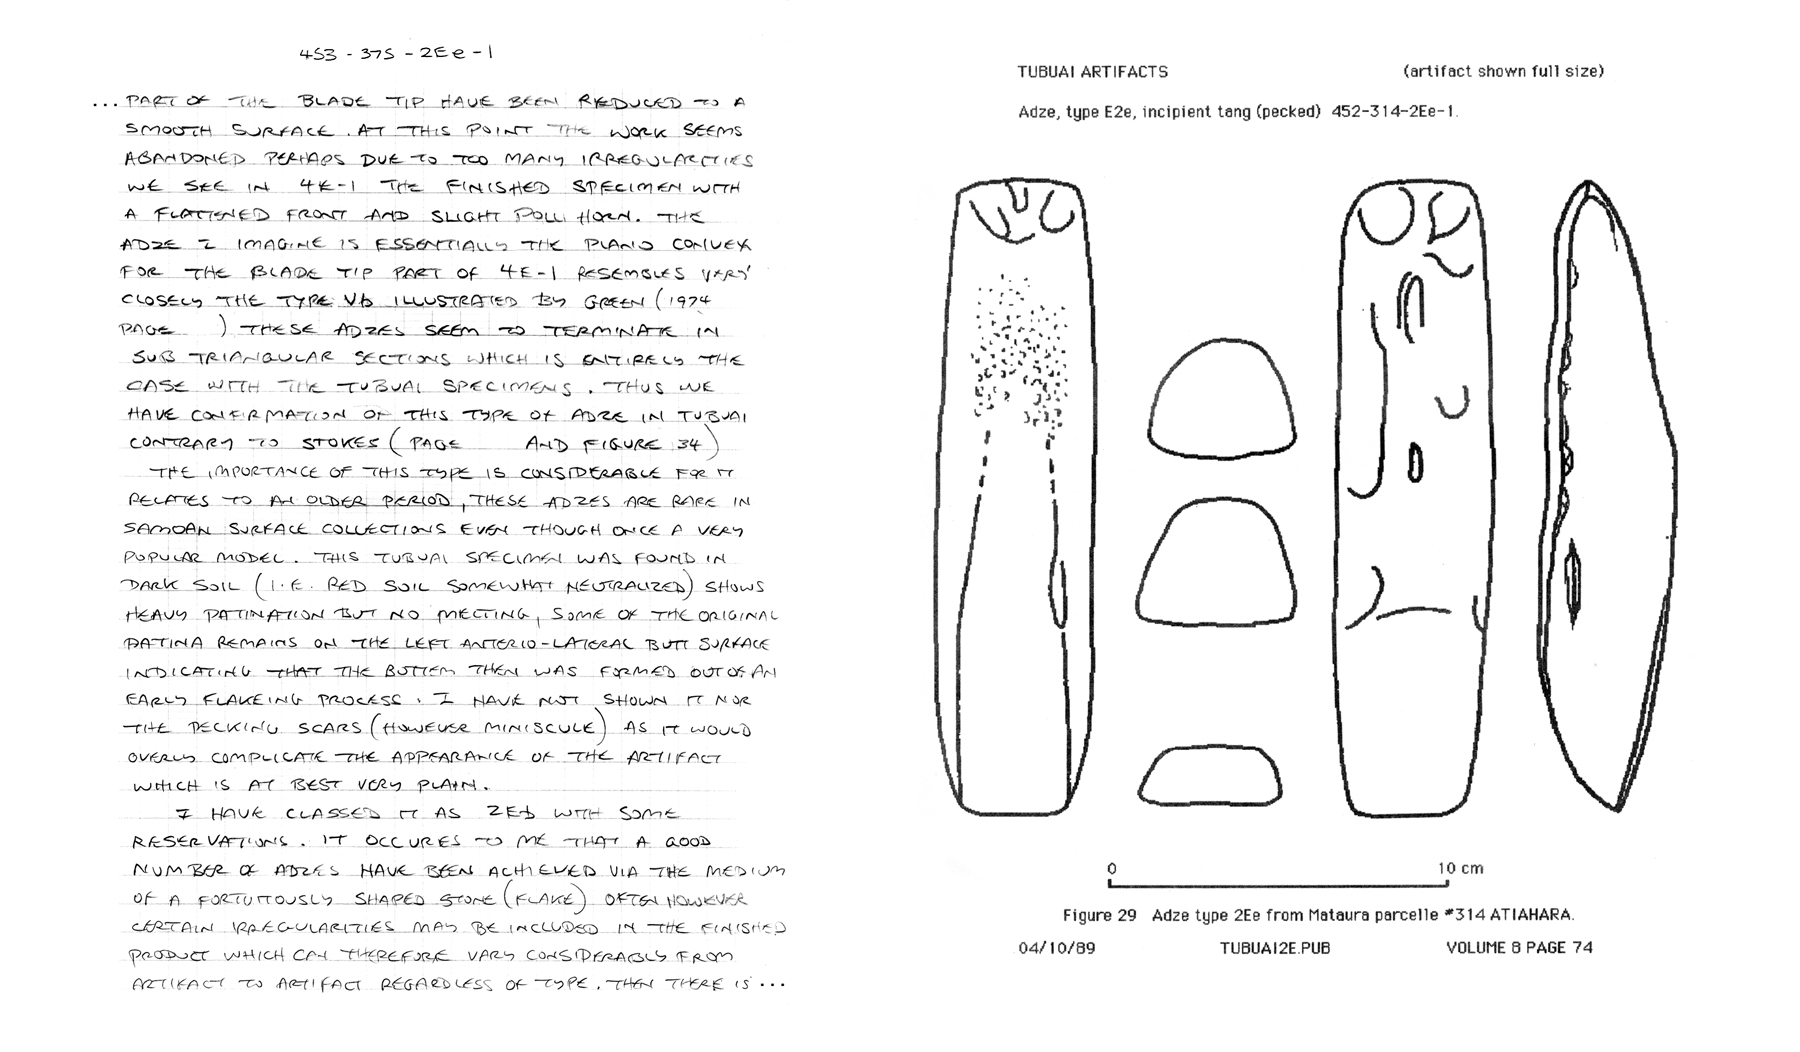 453-375-2Ee-1
...PART OF THE BLADE TIP HAVE BEEN REDUCED TO A
SMOOTH SURFACE. AT THIS POINT THE WORK SEEMS
ABANDONED PERHAPS DUE TO TOO MANY IRREGULARITIES
WE SEE IN 4E-1 THE FINISHED SPECIMEN WITH
A FLATTENED FRONT AND SLIGHT POLL HORN. THE
ADZE I IMAGINE IS ESSENTIALLY THE PLANO CONVEX
FOR THE BLADE TIP PART OF 4E-1 RESEMBLES VERY
CLOSELY THE TYPE Vb ILLUSTRATED BY GREEN (1974
PAGE ) THESE ADZES SEEM TO TERMINATE IN
SUB TRIANGULAR SECTIONS WHICH IS ENTIRELY THE
CASE WITH THE TUBUAI SPECIMENS. THUS WE
HAVE CONFIRMATION OF THIS TYPE OF ADZE IN TUBUAI
CONTRARY TO STOKES (PAGE AND FIGURE 34)
THE IMPORTANCE OF THIS TYPE IS CONSIDERABLE FOR IT
RELATES TO AN OLDER PERIOD, THESE ADZES ARE RARE IN
SAMOAN SURFACE COLLECTIONS EVEN THOUGH ONCE A VERY
POPULAR MODEL. THIS TUBUAI SPECIMEN WAS FOUND IN
DARK SOIL (I.E. RED SOIL SOMEWHAT NEUTRALIZED) SHOWS
HEAVY PATINATION BUT NO MELTING, SOME OF THE ORIGINAL
PATINA REMAINS ON THE LEFT ANTERIO-LATERAL BUTT SURFACE
INDICATING THAT THE BUTT THEN WAS FORMED OUT OF AN
EARLY FLAKEING PROCESS. I HAVE NOT SHOWN IT NOR
THE PECKING SCARS (HOWEVER MINISCULE) AS IT WOULD
OVERLY COMPLICATE THE APPEARANCE OF THE ARTIFACT
WHICH IS AT BEST VERY PLAIN.
I HAVE CLASSED IT AS 2Eb WITH SOME
RESERVATIONS. IT OCCURES TO ME THAT A GOOD
NUMBER OF ADZES HAVE BEEN ACHIEVED VIA THE MEDIUM
OF A FORTUITOUSLY SHAPED STONE (FLAKE) OFTEN HOWEVER
CERTAIN IRREGULARITIES MAY BE INCLUDED IN THE FINISHED
PRODUCT WHICH CAN THEREFORE VARY CONSIDERABLY FROM
ARTIFACT TO ARTIFACT REGARDLESS OF TYPE. THEN THERE IS...
TUBUAI ARTIFACTS (artifact shown full size)
Adze, type E2e, incipient tang (pecked) 452-314-2Ee-1.
0 10 cm
Figure 29 Adze type 2Ee from Mataura parcelle #314 ATIAHARA.
04/10/89 TUBUAI2E.PUB VOLUME 8 PAGE 74